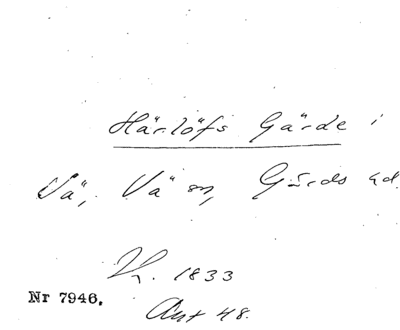 Härlöfs Gärde i
Vä, Vä sn, Gärds hd.
K. 1833
Nr 7946.
Ant 48.